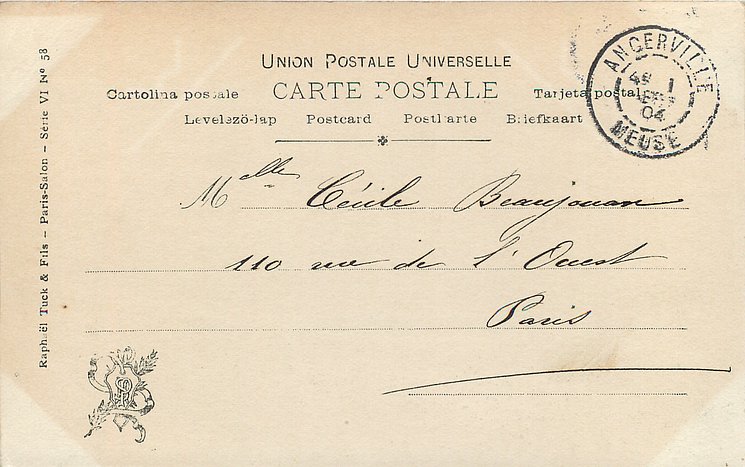 UNION POSTALE UNIVERSELLE
CARTE POSTALE
Cartolina postale
Tarjeta postal
Levelezö-lap Postcard Postkarte Briefkaart
ANCERVILLE
1
04
MEUSE
Melle Cécile Beaujouan
110 rue de l'Ouest
Paris
Raphaël Tuck & Fils – Paris-Salon – Série VI Nº 58